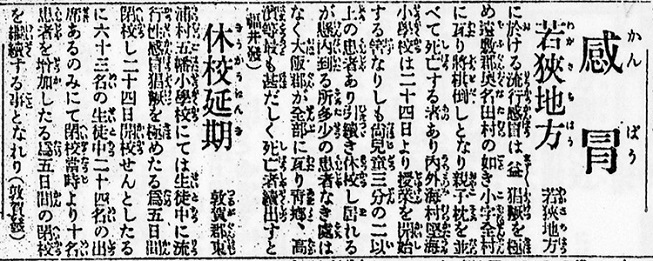 感冒
かんばう
若狭地方
わかさちはう
若狭地方
に於ける流行感冒は益猖獗を極
め遠敷郡奥名田村の如き小字全村
に亙り將棋倒しとなり親子枕を並
べて死亡する者あり内外海村堅海
小學校は二十四日より授業を開始
する筈なりしも尚兒童三分の二以
上の患者あり引續き休校し居れる
が縣內到る所多少の患者なき處は
なく大飯郡が全部に亙り青鄕、高
濱等最も甚だしく死亡者續出すと
(福井發)
休校延期
きうかうえんき
敦賀郡東
浦村五幡小學校にては生徒中に流
行性感冒猖獗を極めたる爲五日間
閉校し二十四日開校せんとしたる
に六十三名の生徒中二十四名の出
席あるのみにて閉校當時より十名
患者を增加したる爲五日間の閉校
を繼續する事となれり(敦賀發)